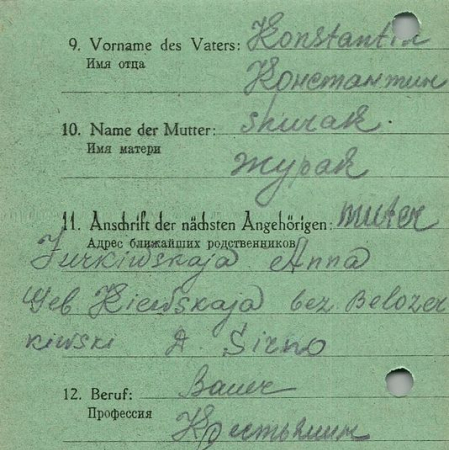 9. Vorname des Vaters: Konstantin
Имя отца Константин
10. Name der Mutter: shurak.
Имя матери журак
11. Anschrift der nächsten Angehörigen: muter
Адрес ближайших родственников
Jurkiwskaja Anna
Geb Kiewskaja bez. Belozer
kiwski D. Sirno
12. Beruf: Bauer
Профессия Крестьянин